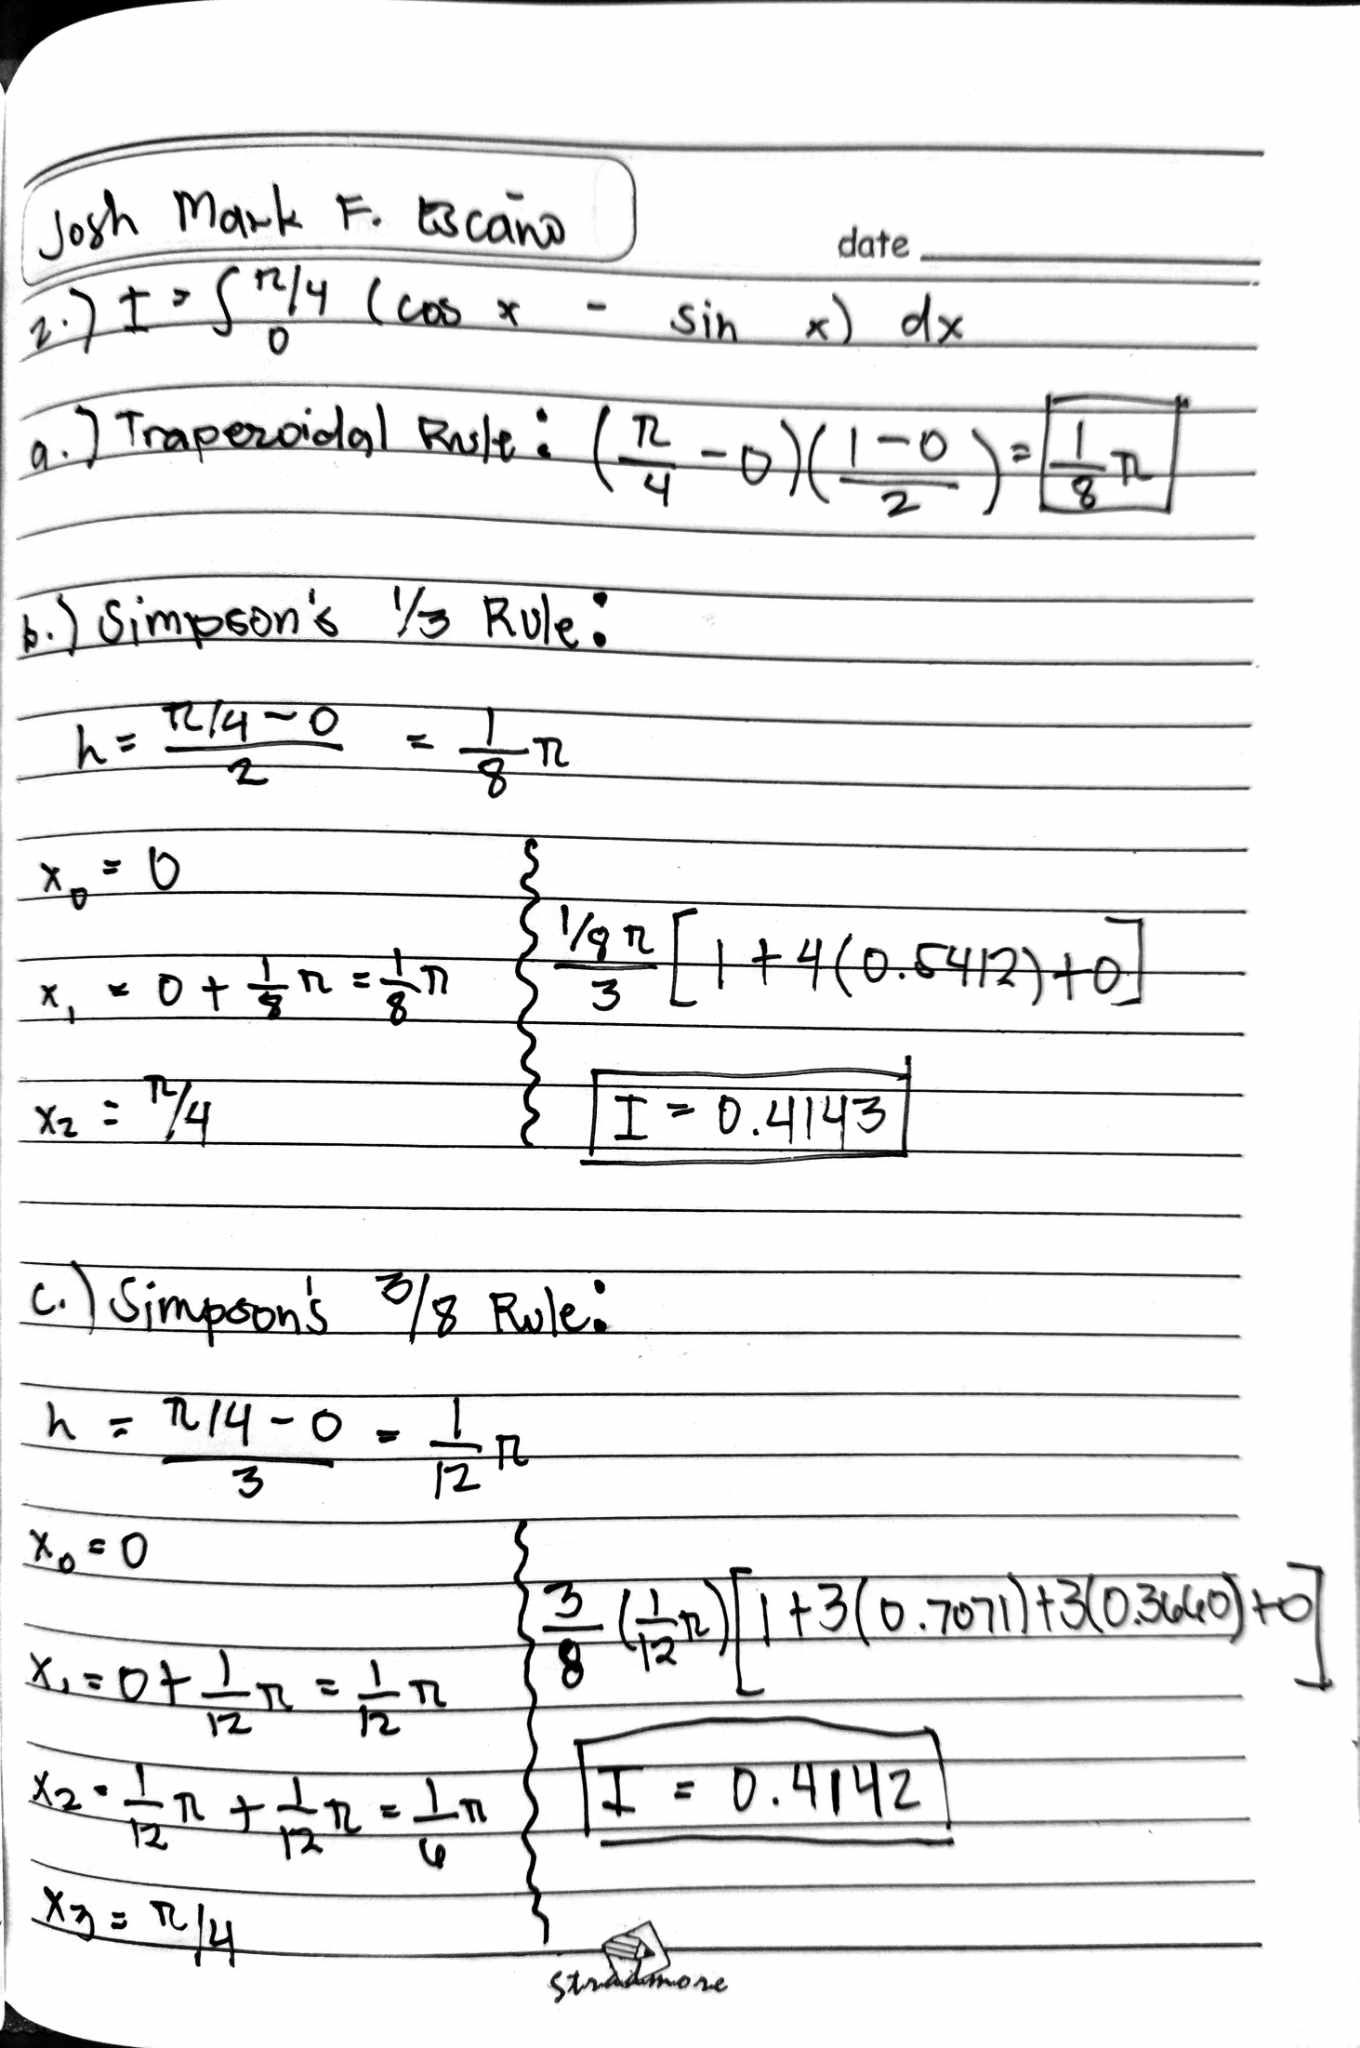 Josh Mark F. Escaño
date
2.) I = ∫ π/4 0 (cos x - sin x) dx
a.) Trapezoidal Rule: (π/4 - 0)(1-0/2) = 1/8 π
b.) Simpson's 1/3 Rule:
h = π/4 - 0 / 2 = 1/8 π
x₀ = 0
x₁ = 0 + 1/8 π = 1/8 π
x₂ = π/4
1/8 π / 3 [1 + 4(0.5412) + 0]
I = 0.4143
c.) Simpson's 3/8 Rule:
h = π/4 - 0 / 3 = 1/12 π
x₀ = 0
x₁ = 0 + 1/12 π = 1/12 π
x₂ = 1/12 π + 1/12 π = 1/6 π
x₃ = π/4
3/8 (1/12 π) [1 + 3(0.7071) + 3(0.3660) + 0]
I = 0.4142
stradmore